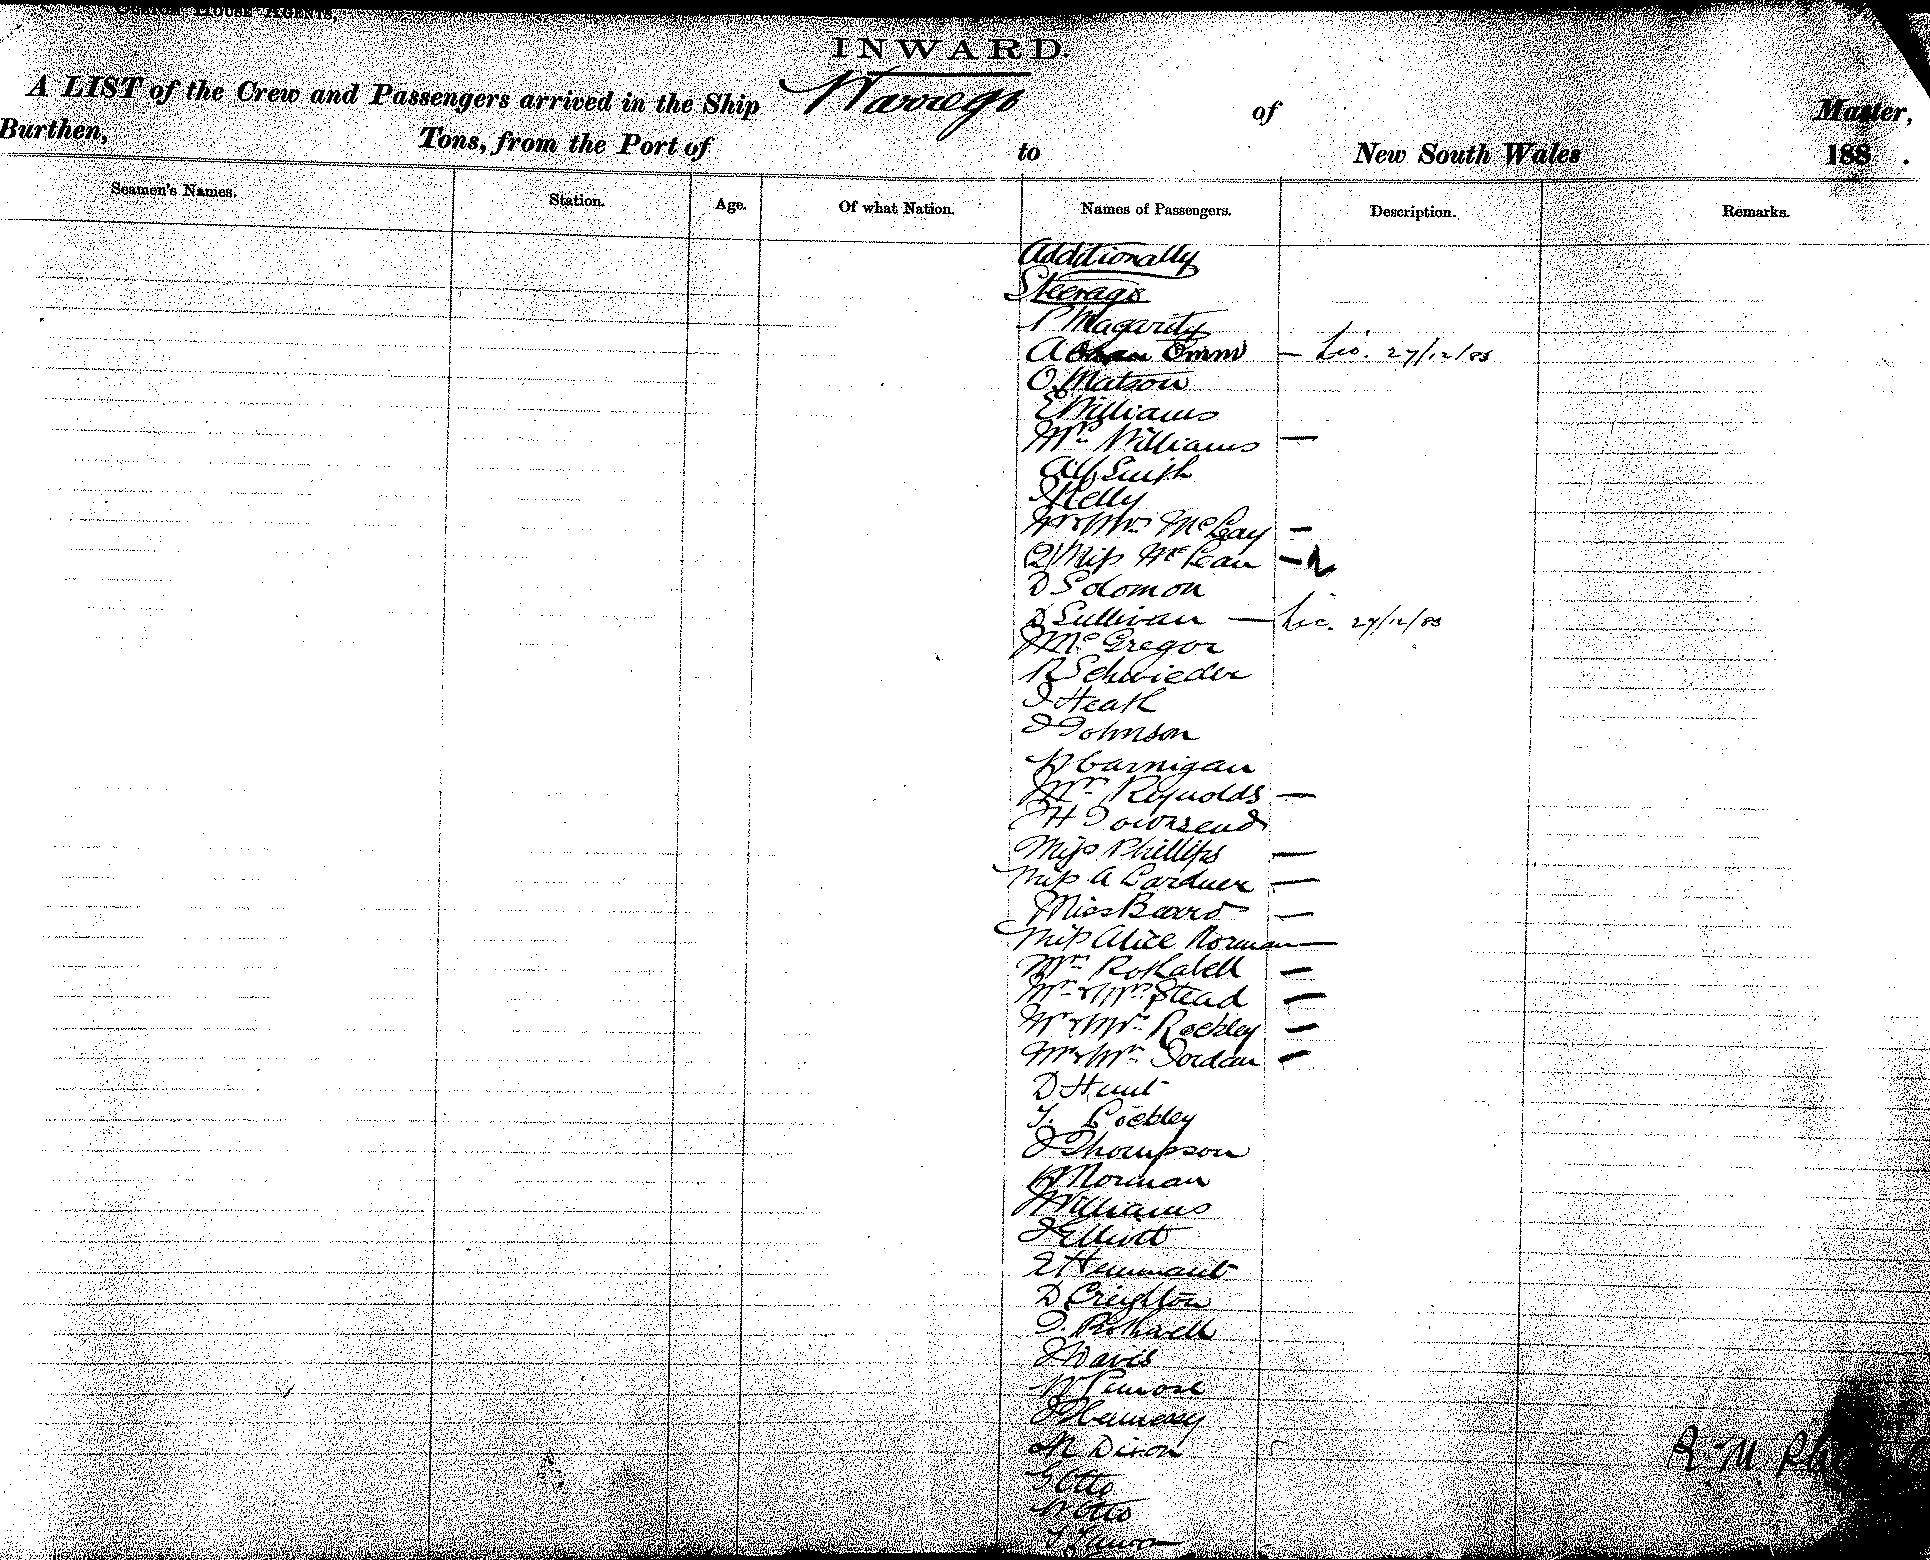 INWARD.
A LIST of the Crew and Passengers arrived in the Ship Warrego of Master,
Burthen, Tons, from the Port of to New South Wales 188 .
Seamen's Names. Station. Age. Of what Nation. Names of Passengers. Description. Remarks.
Additionally
Steerage
P Magarity
A
O Matson
E Williams
Mrs Williams —
Alf Smith
J Kelly
Mr & Mrs McCay —
(2) Miss McLean —
D Solomon
D Sullivan — Lic. 27/12/83
J McGregor
R Schwieder
J Heath
J Johnson
W Carnigan
Mrs Reynolds —
H Townsend
Miss Phillips —
Miss A Gardner —
Miss —
Miss Alice Norman —
Mrs Rothwell —
Mr & Mrs Stead —
Mr & Mrs Rockley —
Mr & Mrs Jordan —
D Hunt
T. Cockley
J Thompson
W Norman
Williams
J Elliott
E Hemmant
D Creighton
J Rothwell
J Davis
W Penrose
P Hennessy
M Dixon
Otto
W Otto
R. M.